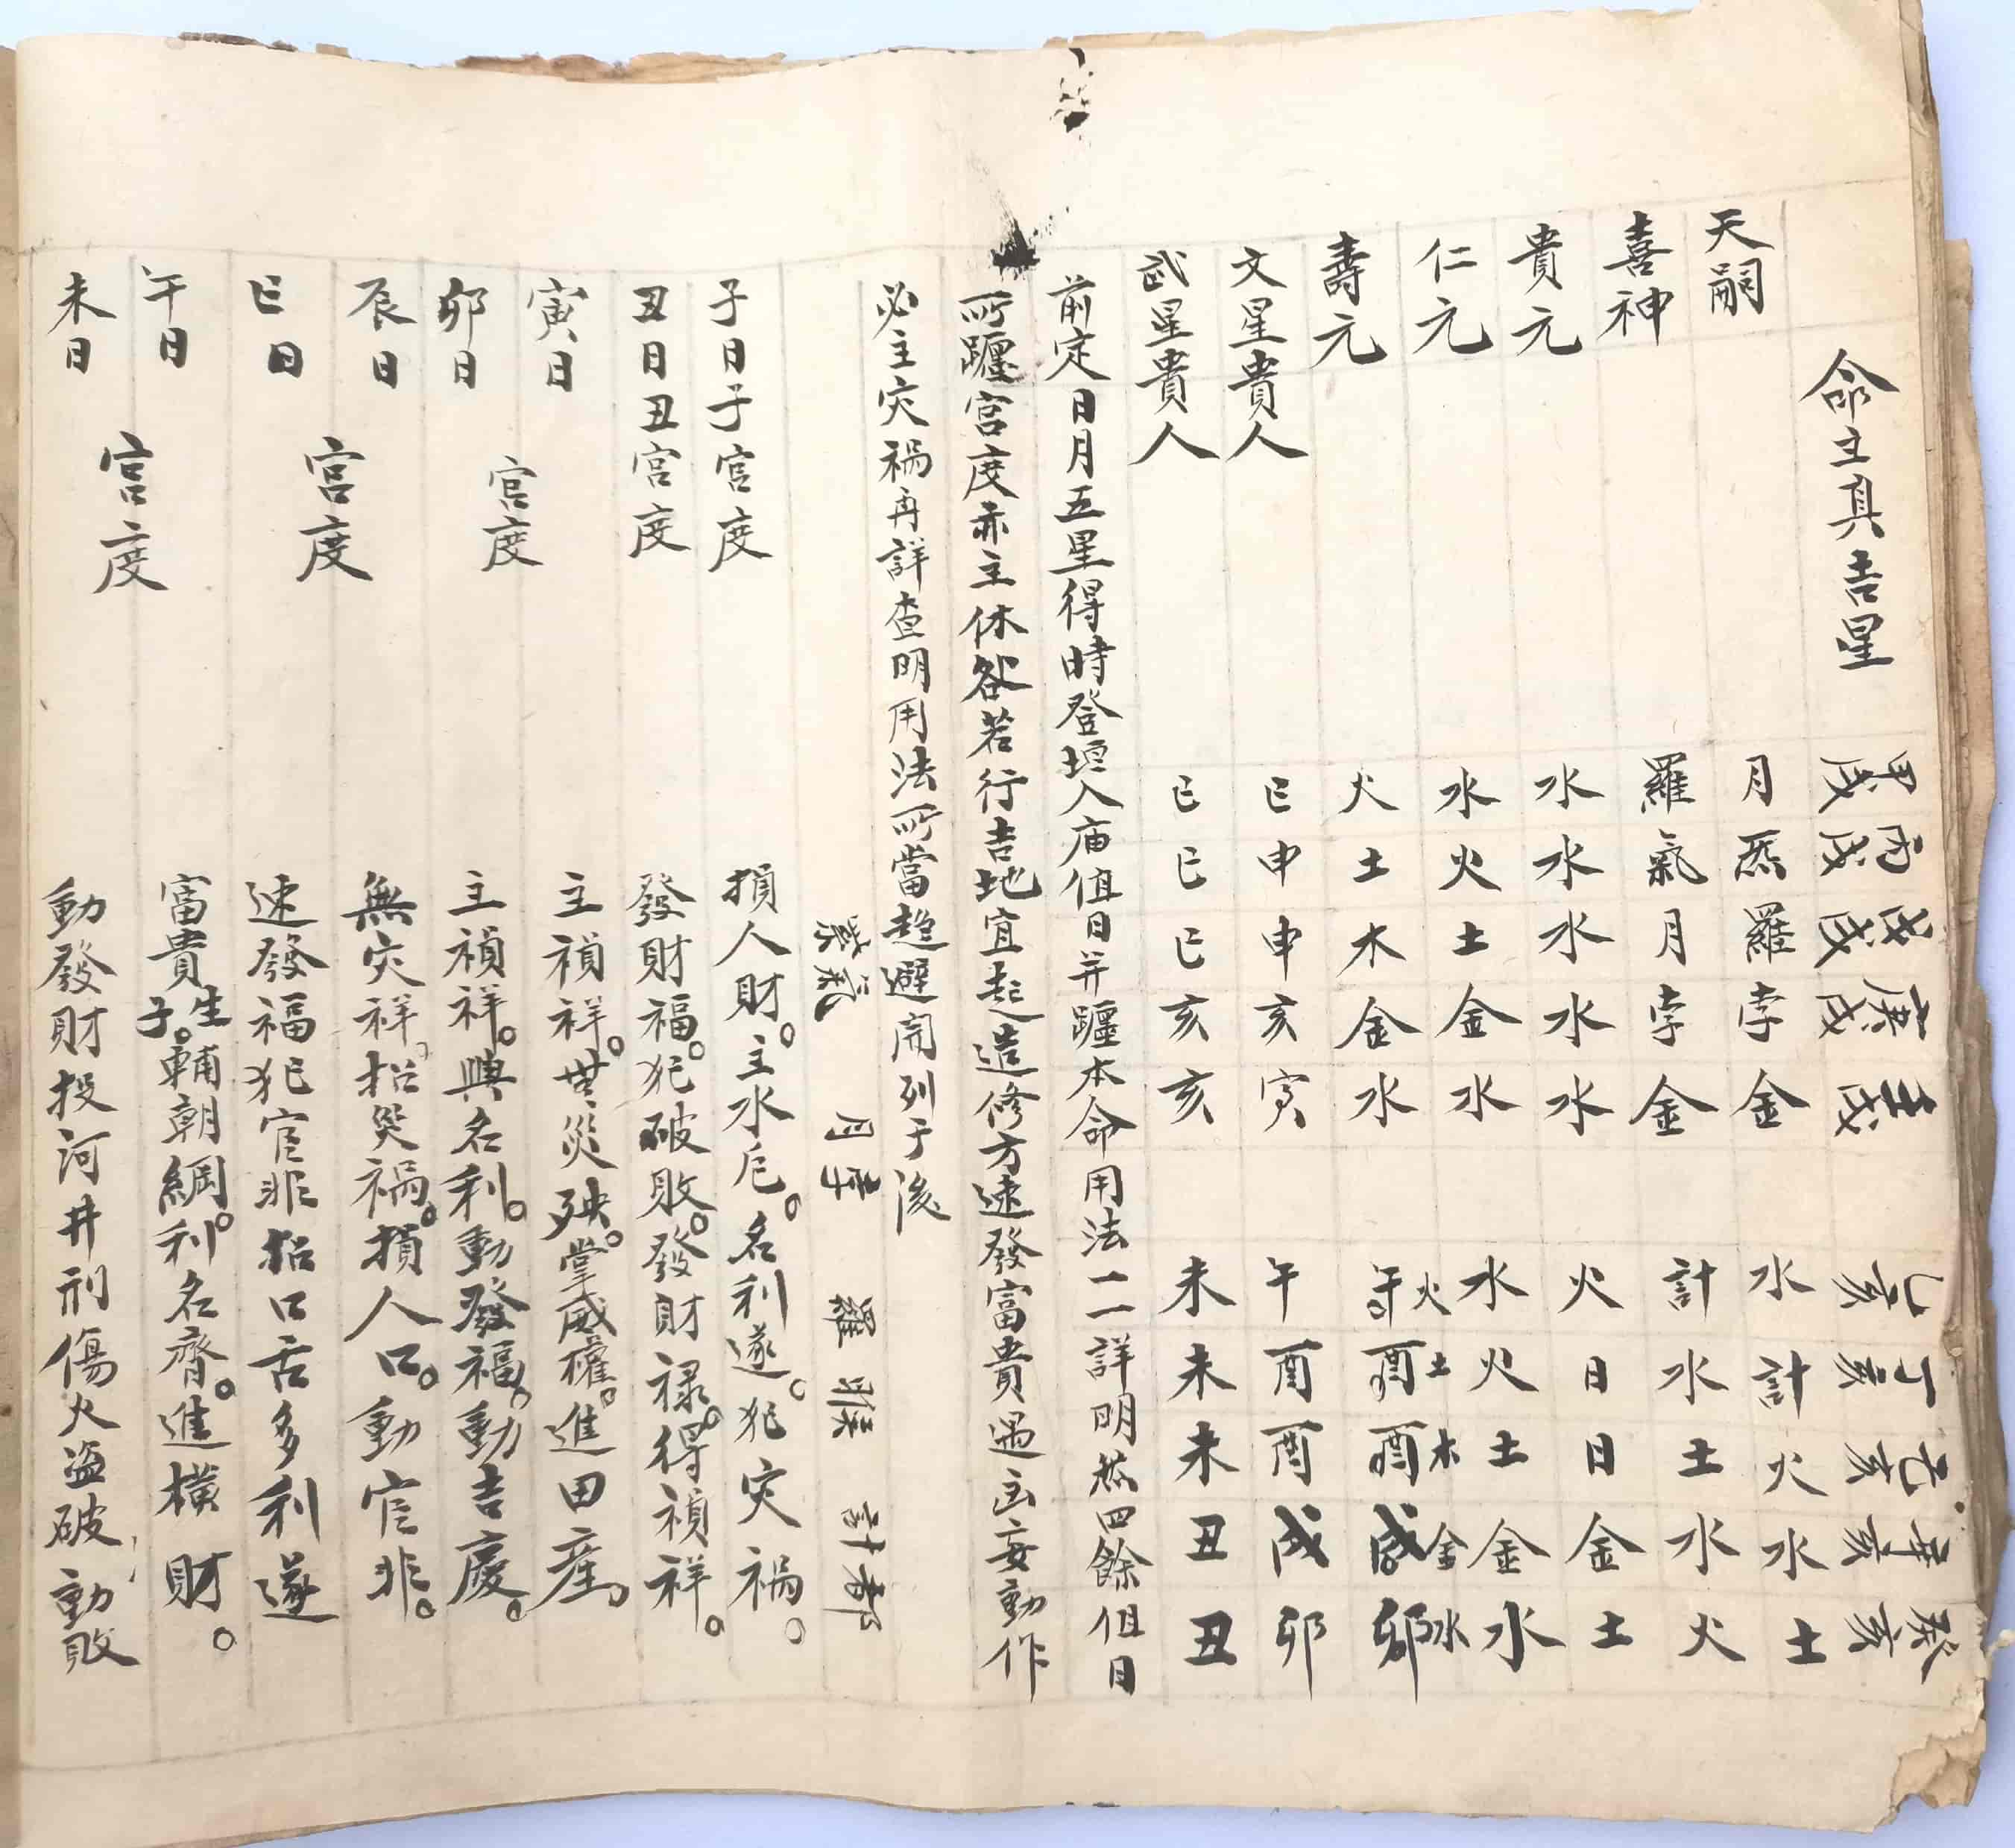 命主真吉星 甲戌 丙戌 戊戌 庚戌 壬戌 乙亥 丁亥 己亥 辛亥 癸亥
天嗣 月 炁 羅 孛 金 水 計 火 水 土
喜神 羅 氣 月 孛 金 計 水 土 水 火
貴元 水 水 水 水 水 火 日 日 金 土
仁元 水 火 土 金 水 水 火 土 金 水
壽元 火 土 木 金 水 午火 酉土 酉木 戌金 卯水
文星貴人 巳 申 申 亥 寅 午 酉 酉 戌 卯
武星貴人 巳 巳 巳 亥 亥 未 未 未 丑 丑
前定日月五星得時登垣入庙值日并躔本命用法一一詳明然四餘值日
所躔宮度亦主休咎若行吉地宜起造修方速發富貴遇凶妄動作
必主灾禍再詳查明用法所當趋避開列于後
紫氣 月孛 羅猴 計都
子日子宮度 損人財。主水厄。名利遂。犯灾禍。
丑日丑宮度 發財福。犯破敗。發財禄。得禎祥。
寅日 主禎祥。無災殃。掌威權。進田產。
宮度
卯日 主禎祥。興名利。動發福。動吉慶。
辰日 無灾祥。招災禍。損人口。動官非。
宮度
巳日 速發福犯官非招口舌多利遂
午日 富貴生子。輔朝綱。利名齊。進横財。
宮度
未日 動發財投河井刑傷火盜破動敗